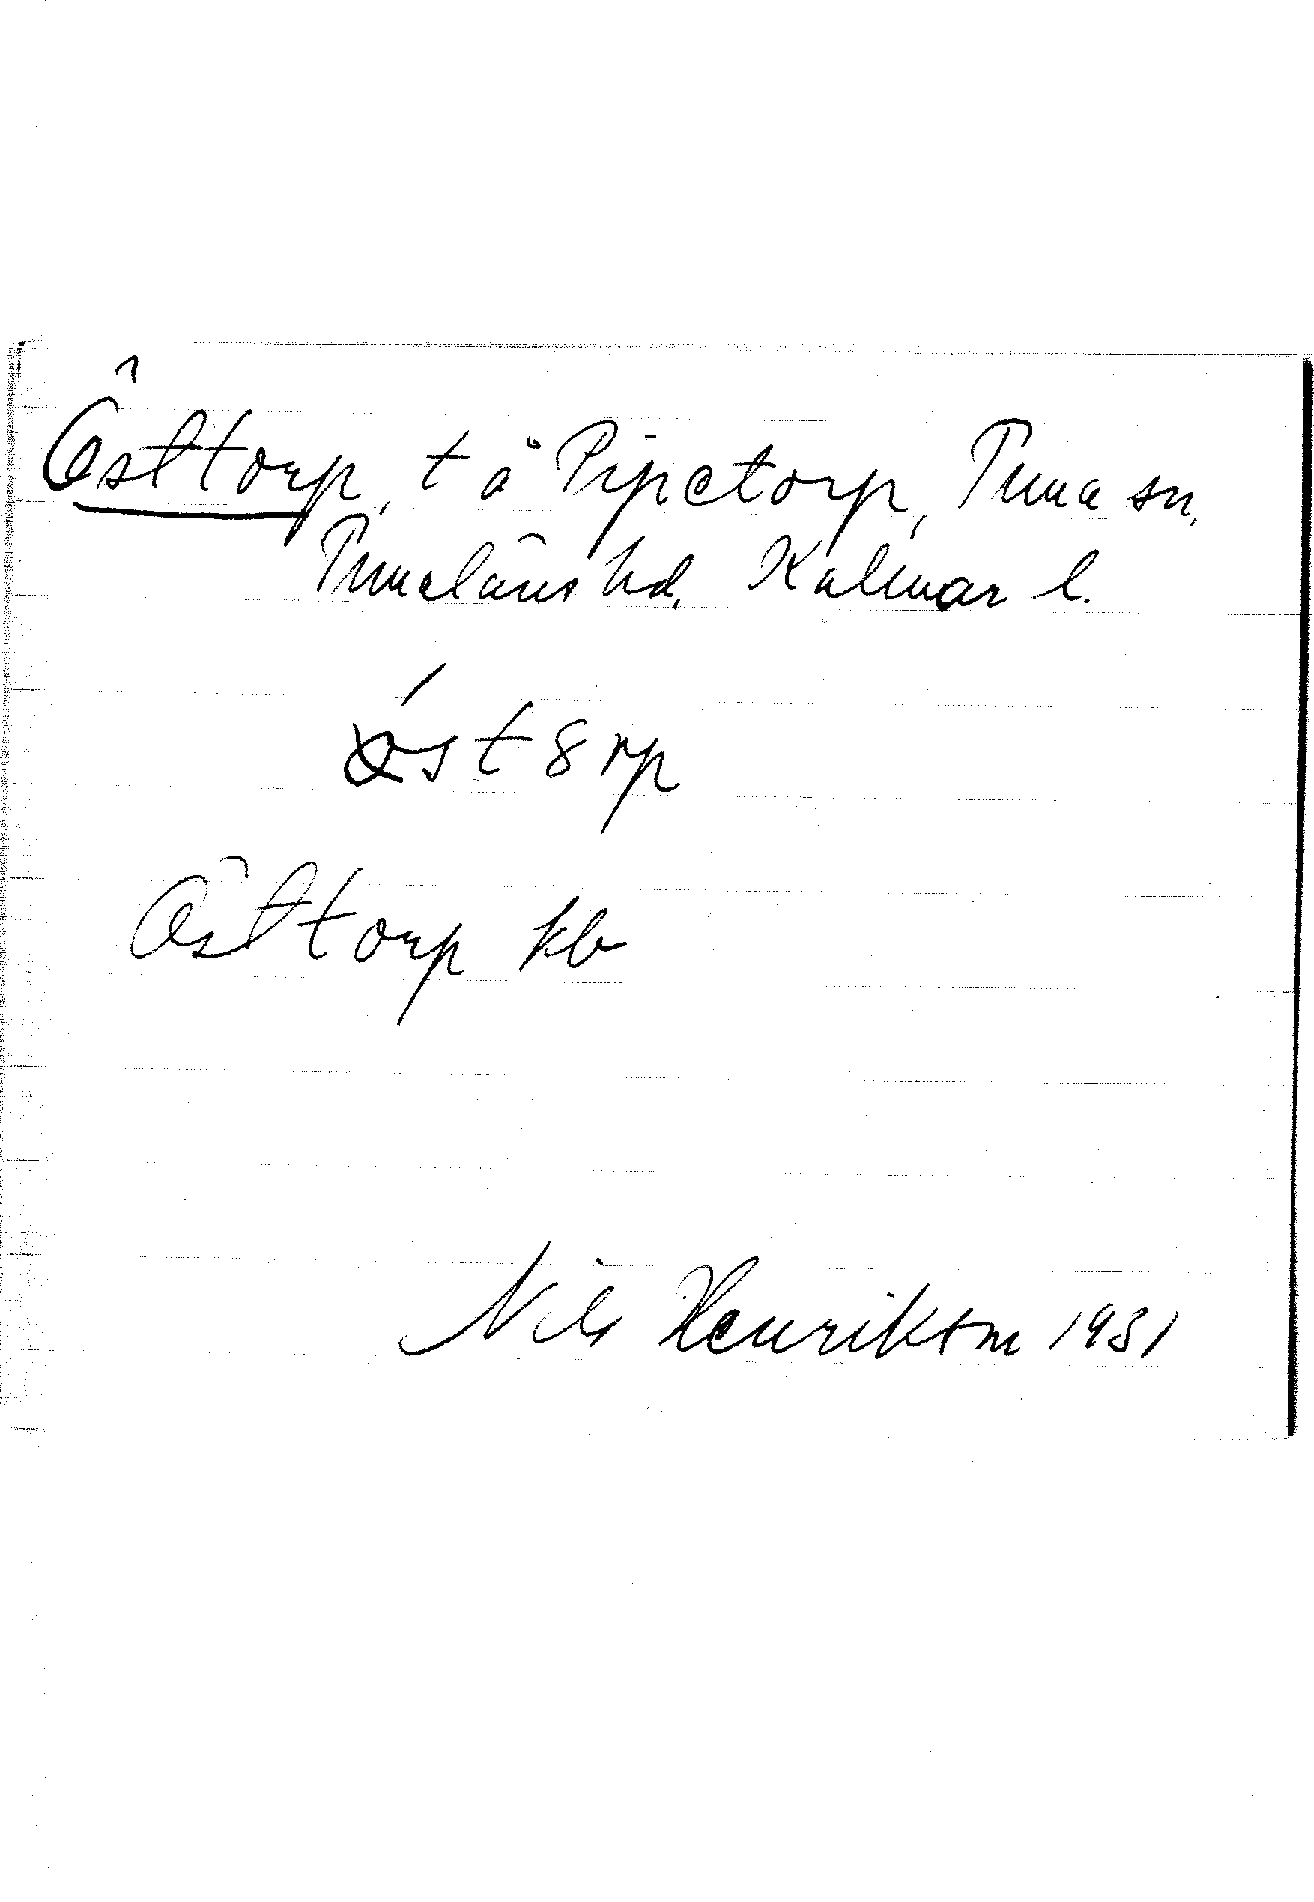 Östtorp, t å Pipetorp, Tuna sn,
Tunaläns hd. Kalmar l.
Östtorp kb
Nils Henrikson 1931